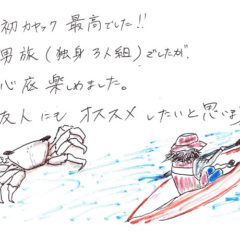 初カヤック 最高でした!!
男旅(独身3人組)でしたが、
心底楽しめました。
友人にも オススメ したいと思いま